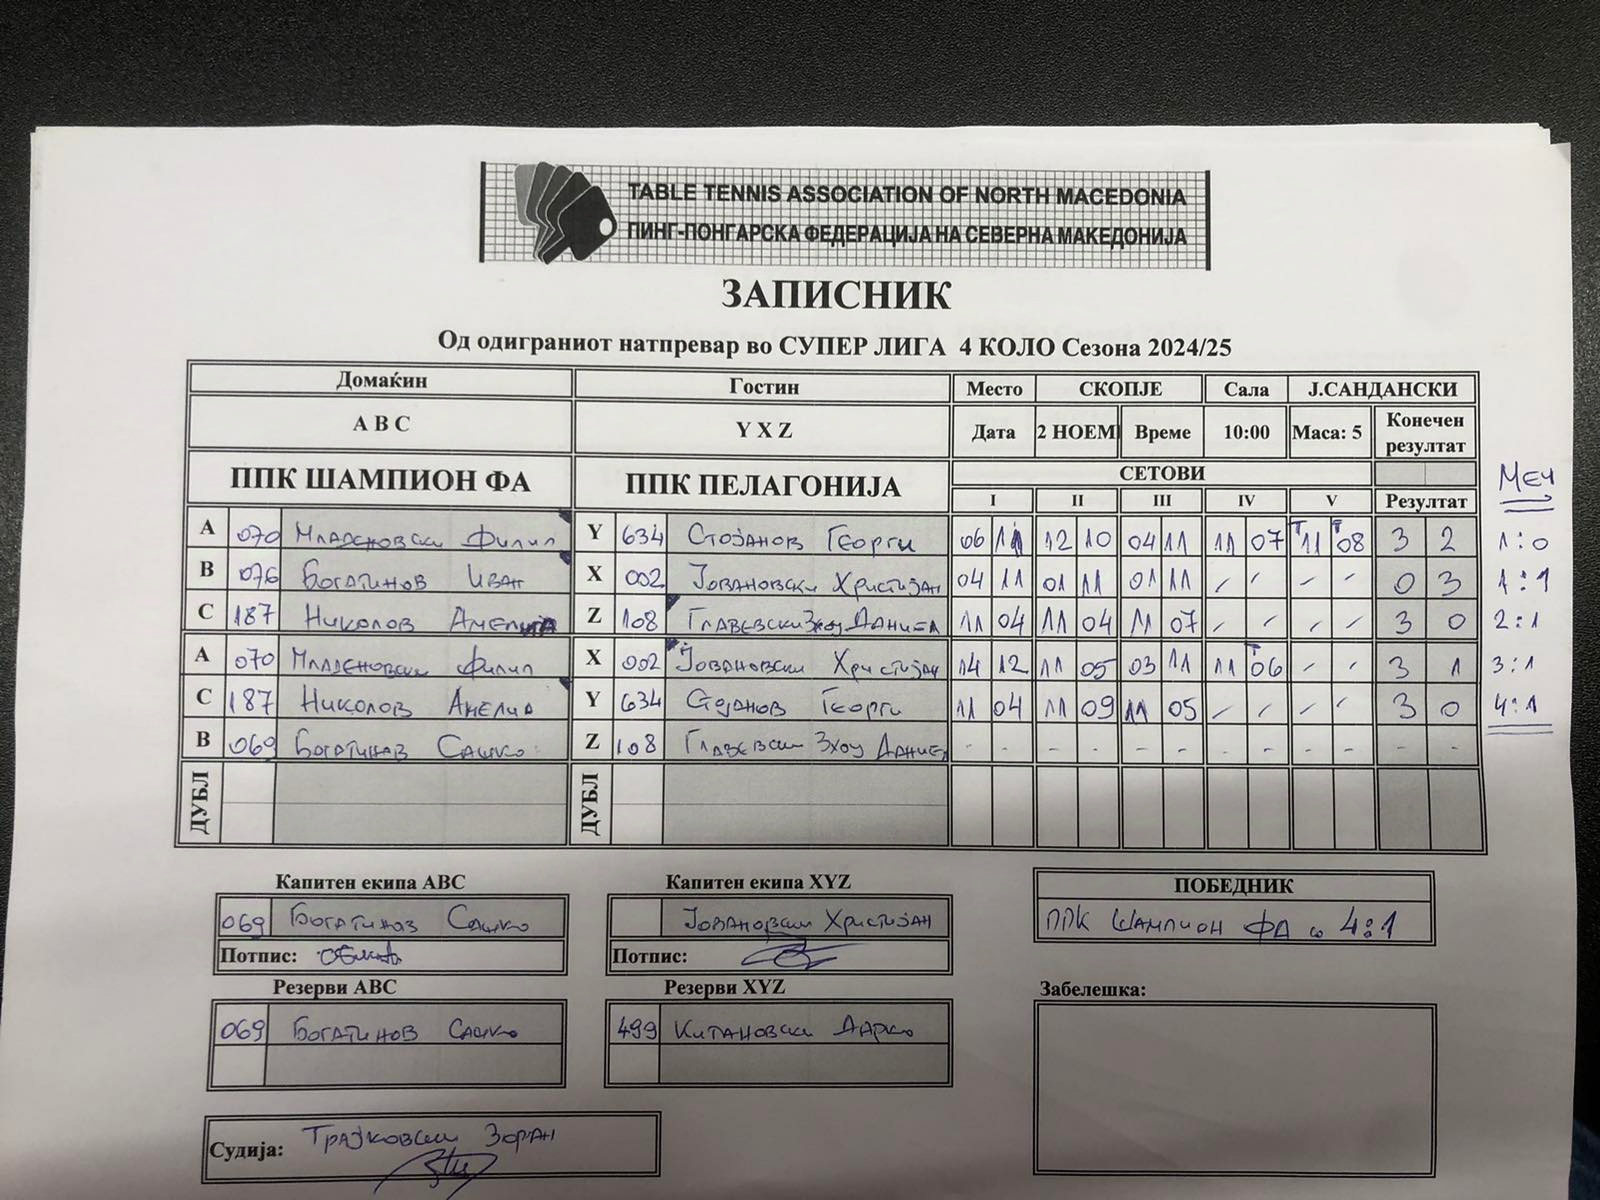 TABLE TENNIS ASSOCIATION OF NORTH MACEDONIA
ПИНГ-ПОНГАРСКА ФЕДЕРАЦИЈА НА СЕВЕРНА МАКЕДОНИЈА
ЗАПИСНИК
Од одиграниот натпревар во СУПЕР ЛИГА 4 КОЛО Сезона 2024/25
Домаќин Гостин Место СКОПЈЕ Сала Ј.САНДАНСКИ
A B C Y X Z Дата 2 НОЕМ Време 10:00 Маса: 5 Конечен резултат
ППК ШАМПИОН ФА ППК ПЕЛАГОНИЈА СЕТОВИ
I II III IV V Резултат Меч
A 070 Младеновски Филип Y 634 Стојанов Георги 06 11 12 10 04 11 11 07 11 08 3 2 1:0
B 076 Богатинов Иван X 002 Јовановски Христијан 04 11 01 11 01 11 / / / / 0 3 1:1
C 187 Николов Амелија Z 108 Главевски Зхоу Даниел 11 04 11 04 11 07 / / / / 3 0 2:1
A 070 Младеновски Филип X 002 Јовановски Христијан 14 12 11 05 03 11 11 06 / / 3 1 3:1
C 187 Николов Амелиа Y 634 Стојанов Георги 11 04 11 09 11 05 / / / / 3 0 4:1
B 069 Богатинов Сашко Z 108 Главевски Зхоу Даниел - - - - - - - - - - - -
ДУБЛ ДУБЛ
Капитен екипа ABC Капитен екипа XYZ ПОБЕДНИК
069 Богатинов Сашко Јовановски Христијан ППК Шампион ФА со 4:1
Потпис: Потпис:
Резерви ABC Резерви XYZ Забелешка:
069 Богатинов Сашко 499 Китановски Дарко
Судија: Трајковски Зоран